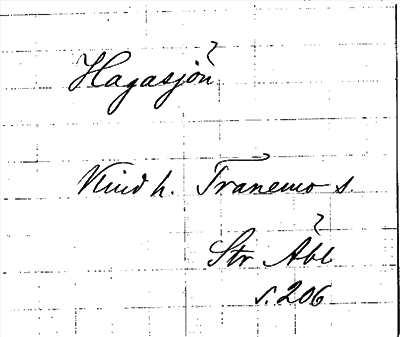 Hagasjön
Kind h. Tranemo s.
Str Åbl
s. 206